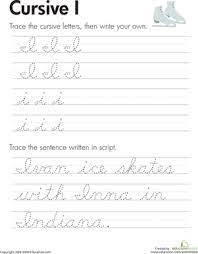 Cursive I
Trace the cursive letters, then write your own.
I I I
I I I
i i i
i i i
Trace the sentence written in script.
Ivan ice skates
with Inna in
Indiana.